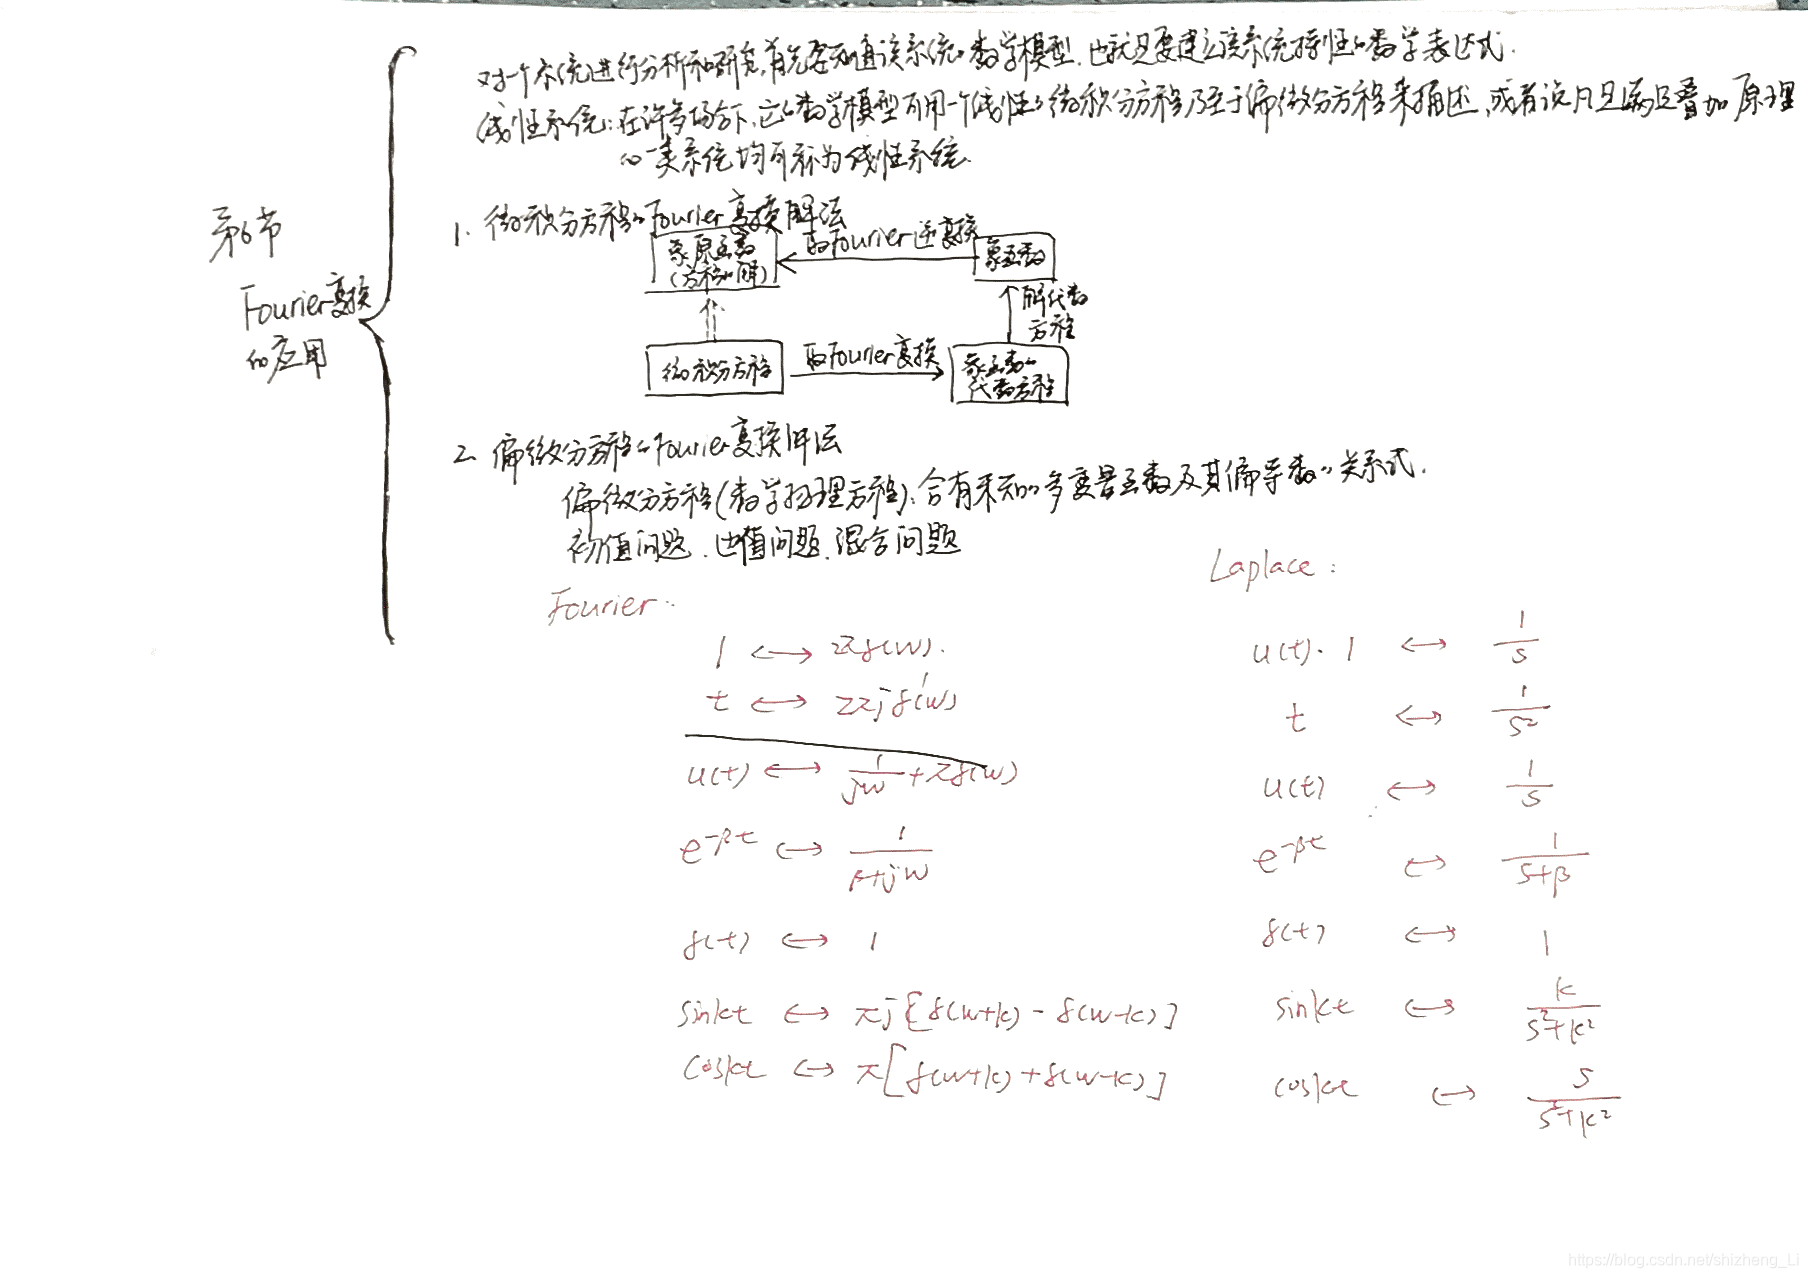 对一个系统进行分析和研究,首先要知道该系统的数学模型,也就是要建立该系统特性的数学表达式.
线性系统:在许多场合下,它的数学模型可用一个线性的微积分方程乃至于偏微分方程来描述,或者说凡是满足叠加原理
的一类系统均可称为线性系统.
第6节
Fourier变换
的应用
1. 微积分方程的Fourier变换解法
象原函数
(方程的解)
取Fourier逆变换
象函数
解代数
方程
微积分方程
取Fourier变换
象函数的
代数方程
2. 偏微分方程的Fourier变换解法
偏微分方程(数学物理方程):含有未知的多变量函数及其偏导数的关系式.
初值问题.边值问题.混合问题
Fourier:
1 ↔ 2πδ(w).
t ↔ 2πjδ'(w)
u(t) ↔ 1/jw + πδ(w)
e^-βt ↔ 1/β+jw
δ(t) ↔ 1
sinkt ↔ πj[δ(w+k) - δ(w-k)]
coskt ↔ π[δ(w+k)+δ(w-k)]
Laplace:
u(t)·1 ↔ 1/s
t ↔ 1/s²
u(t) ↔ 1/s
e^-βt ↔ 1/s+β
δ(t) ↔ 1
sinkt ↔ k/s²+k²
coskt ↔ s/s²+k²
https://blog.csdn.net/shizheng_Li